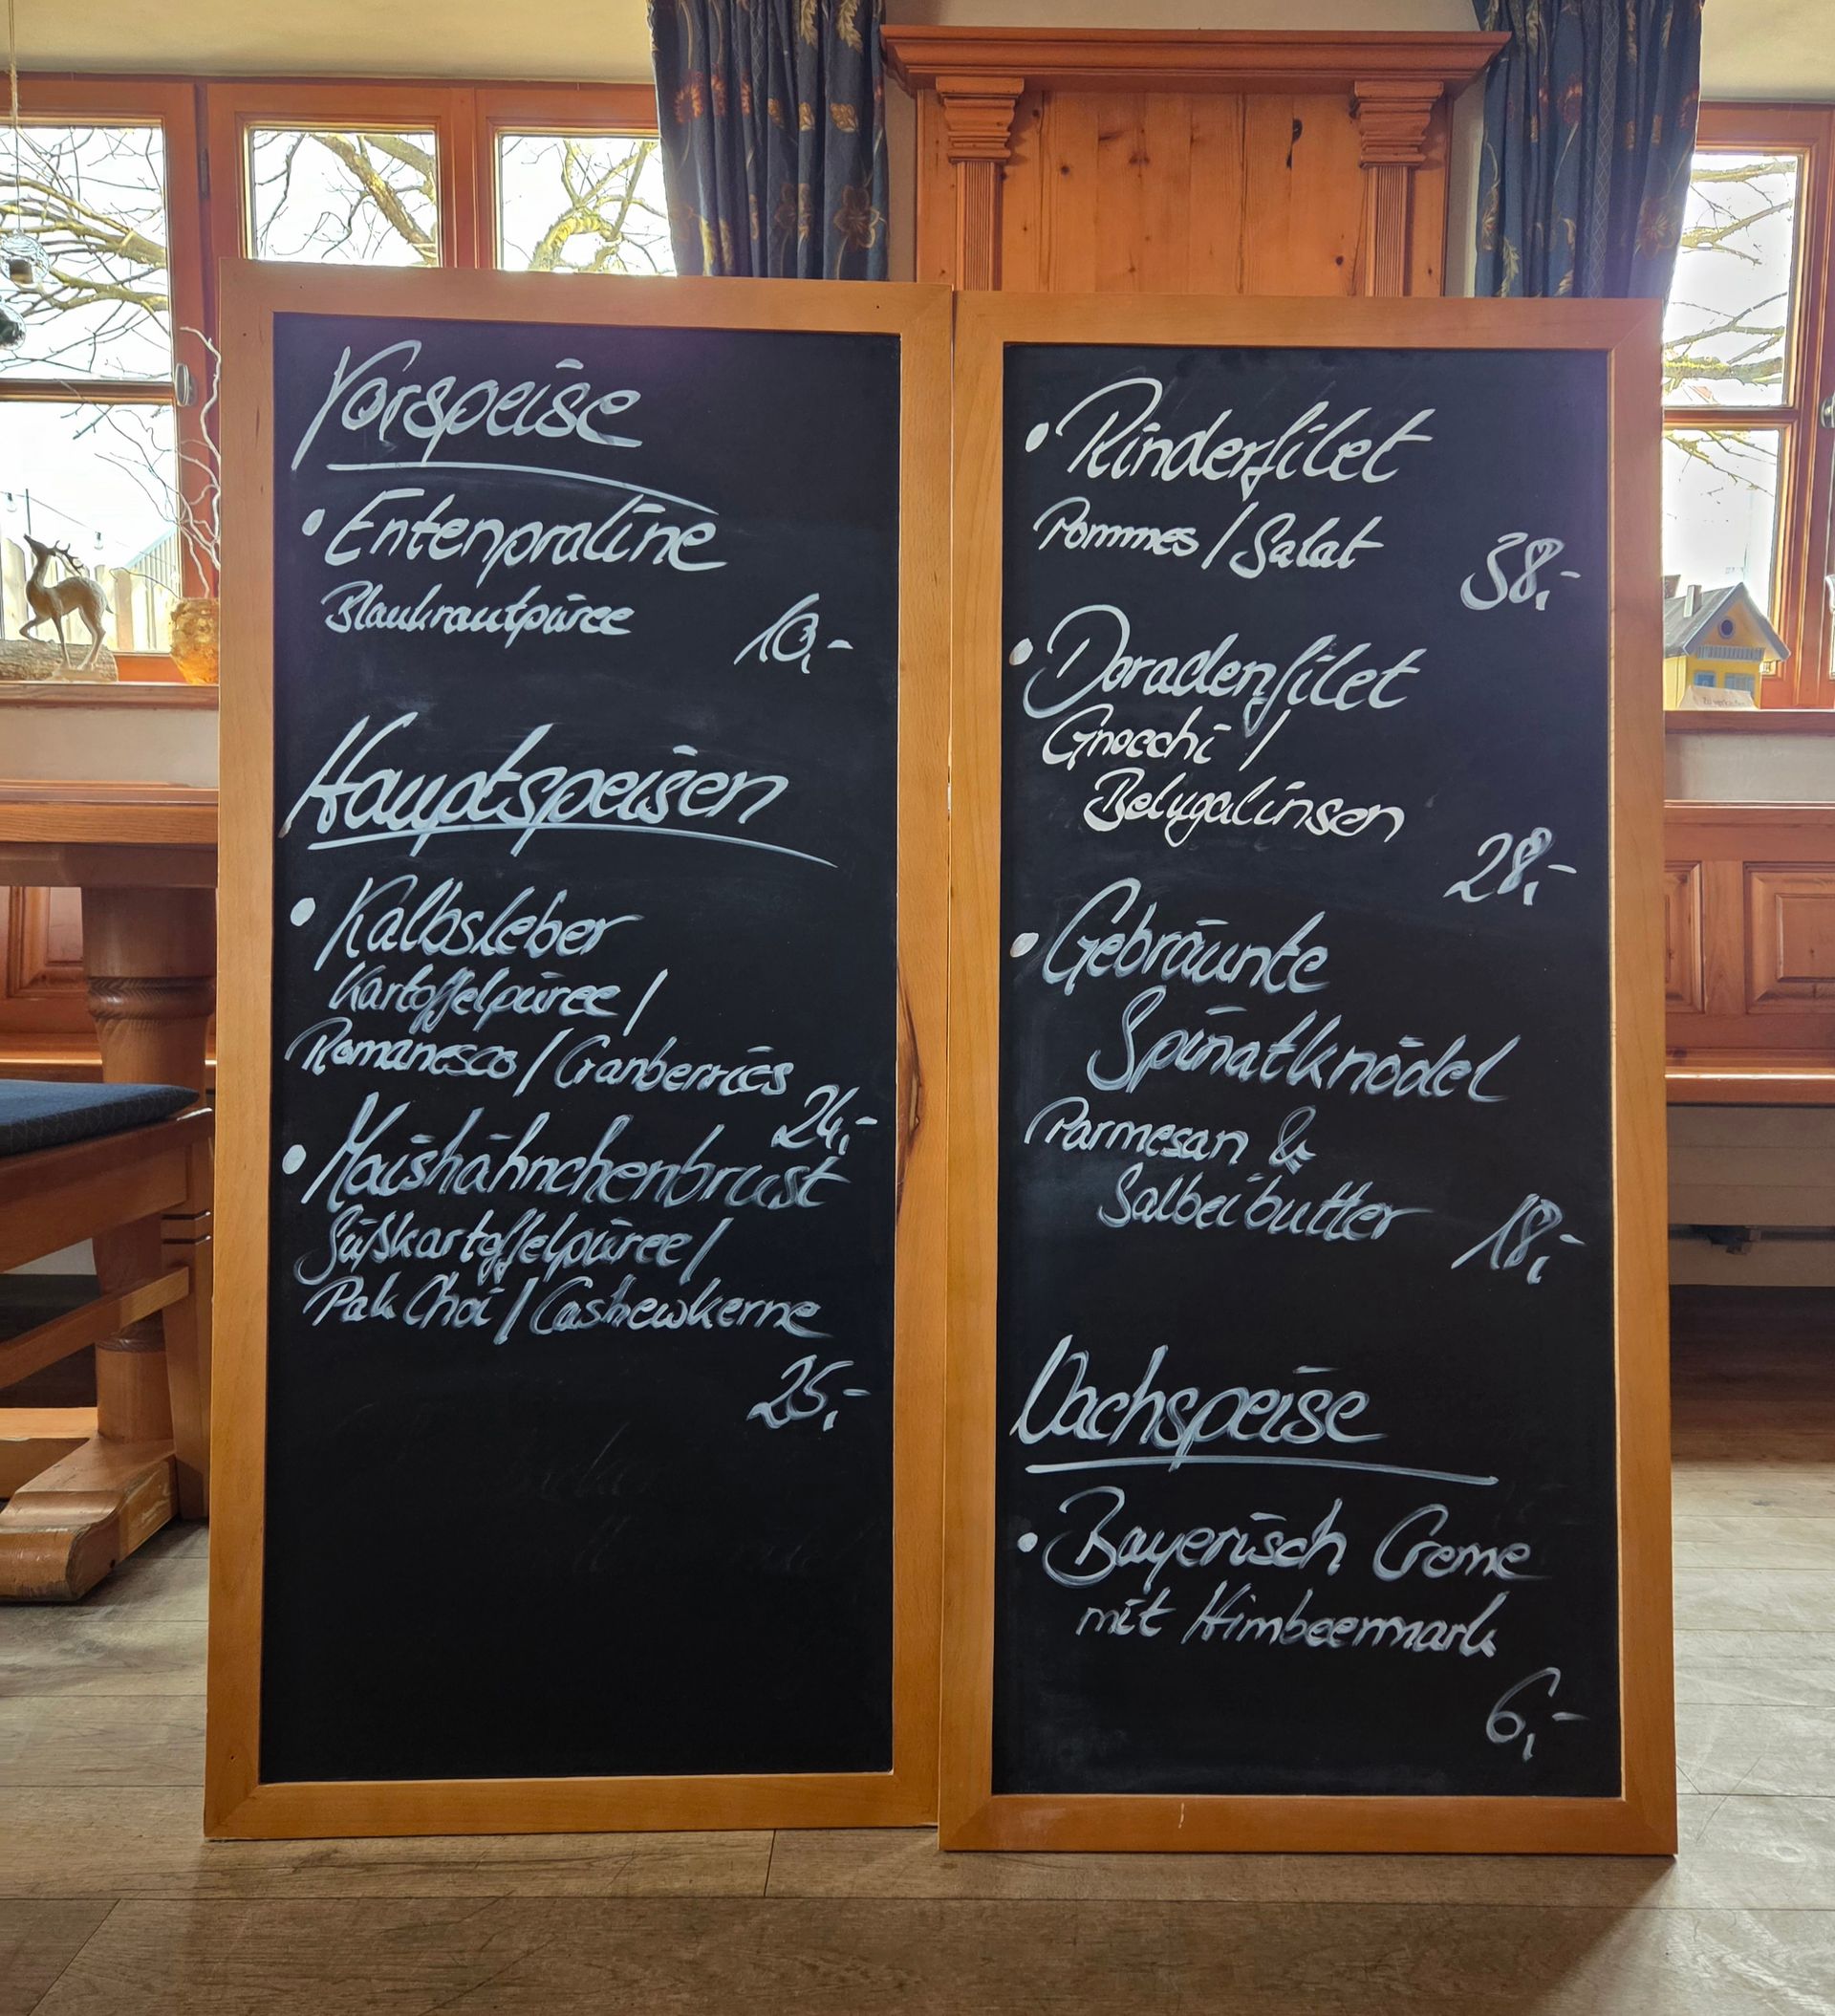 Vorspeise
• Entenpraline
Blaukrautpüree
10,-
Hauptspeisen
• Kalbsleber
Kartoffelpüree /
Romanesco / Cranberries
24,-
• Maishähnchenbrust
Süßkartoffelpüree /
Pak Choi / Cashewkerne
25,-
• Rinderfilet
Pommes / Salat
38,-
• Doradenfilet
Gnocchi /
Belugalinsen
28,-
• Gebräunte
Spinatknödel
Parmesan &
Salbeibutter
18,-
Nachspeise
• Bayerisch Creme
mit Himbeermark
6,-